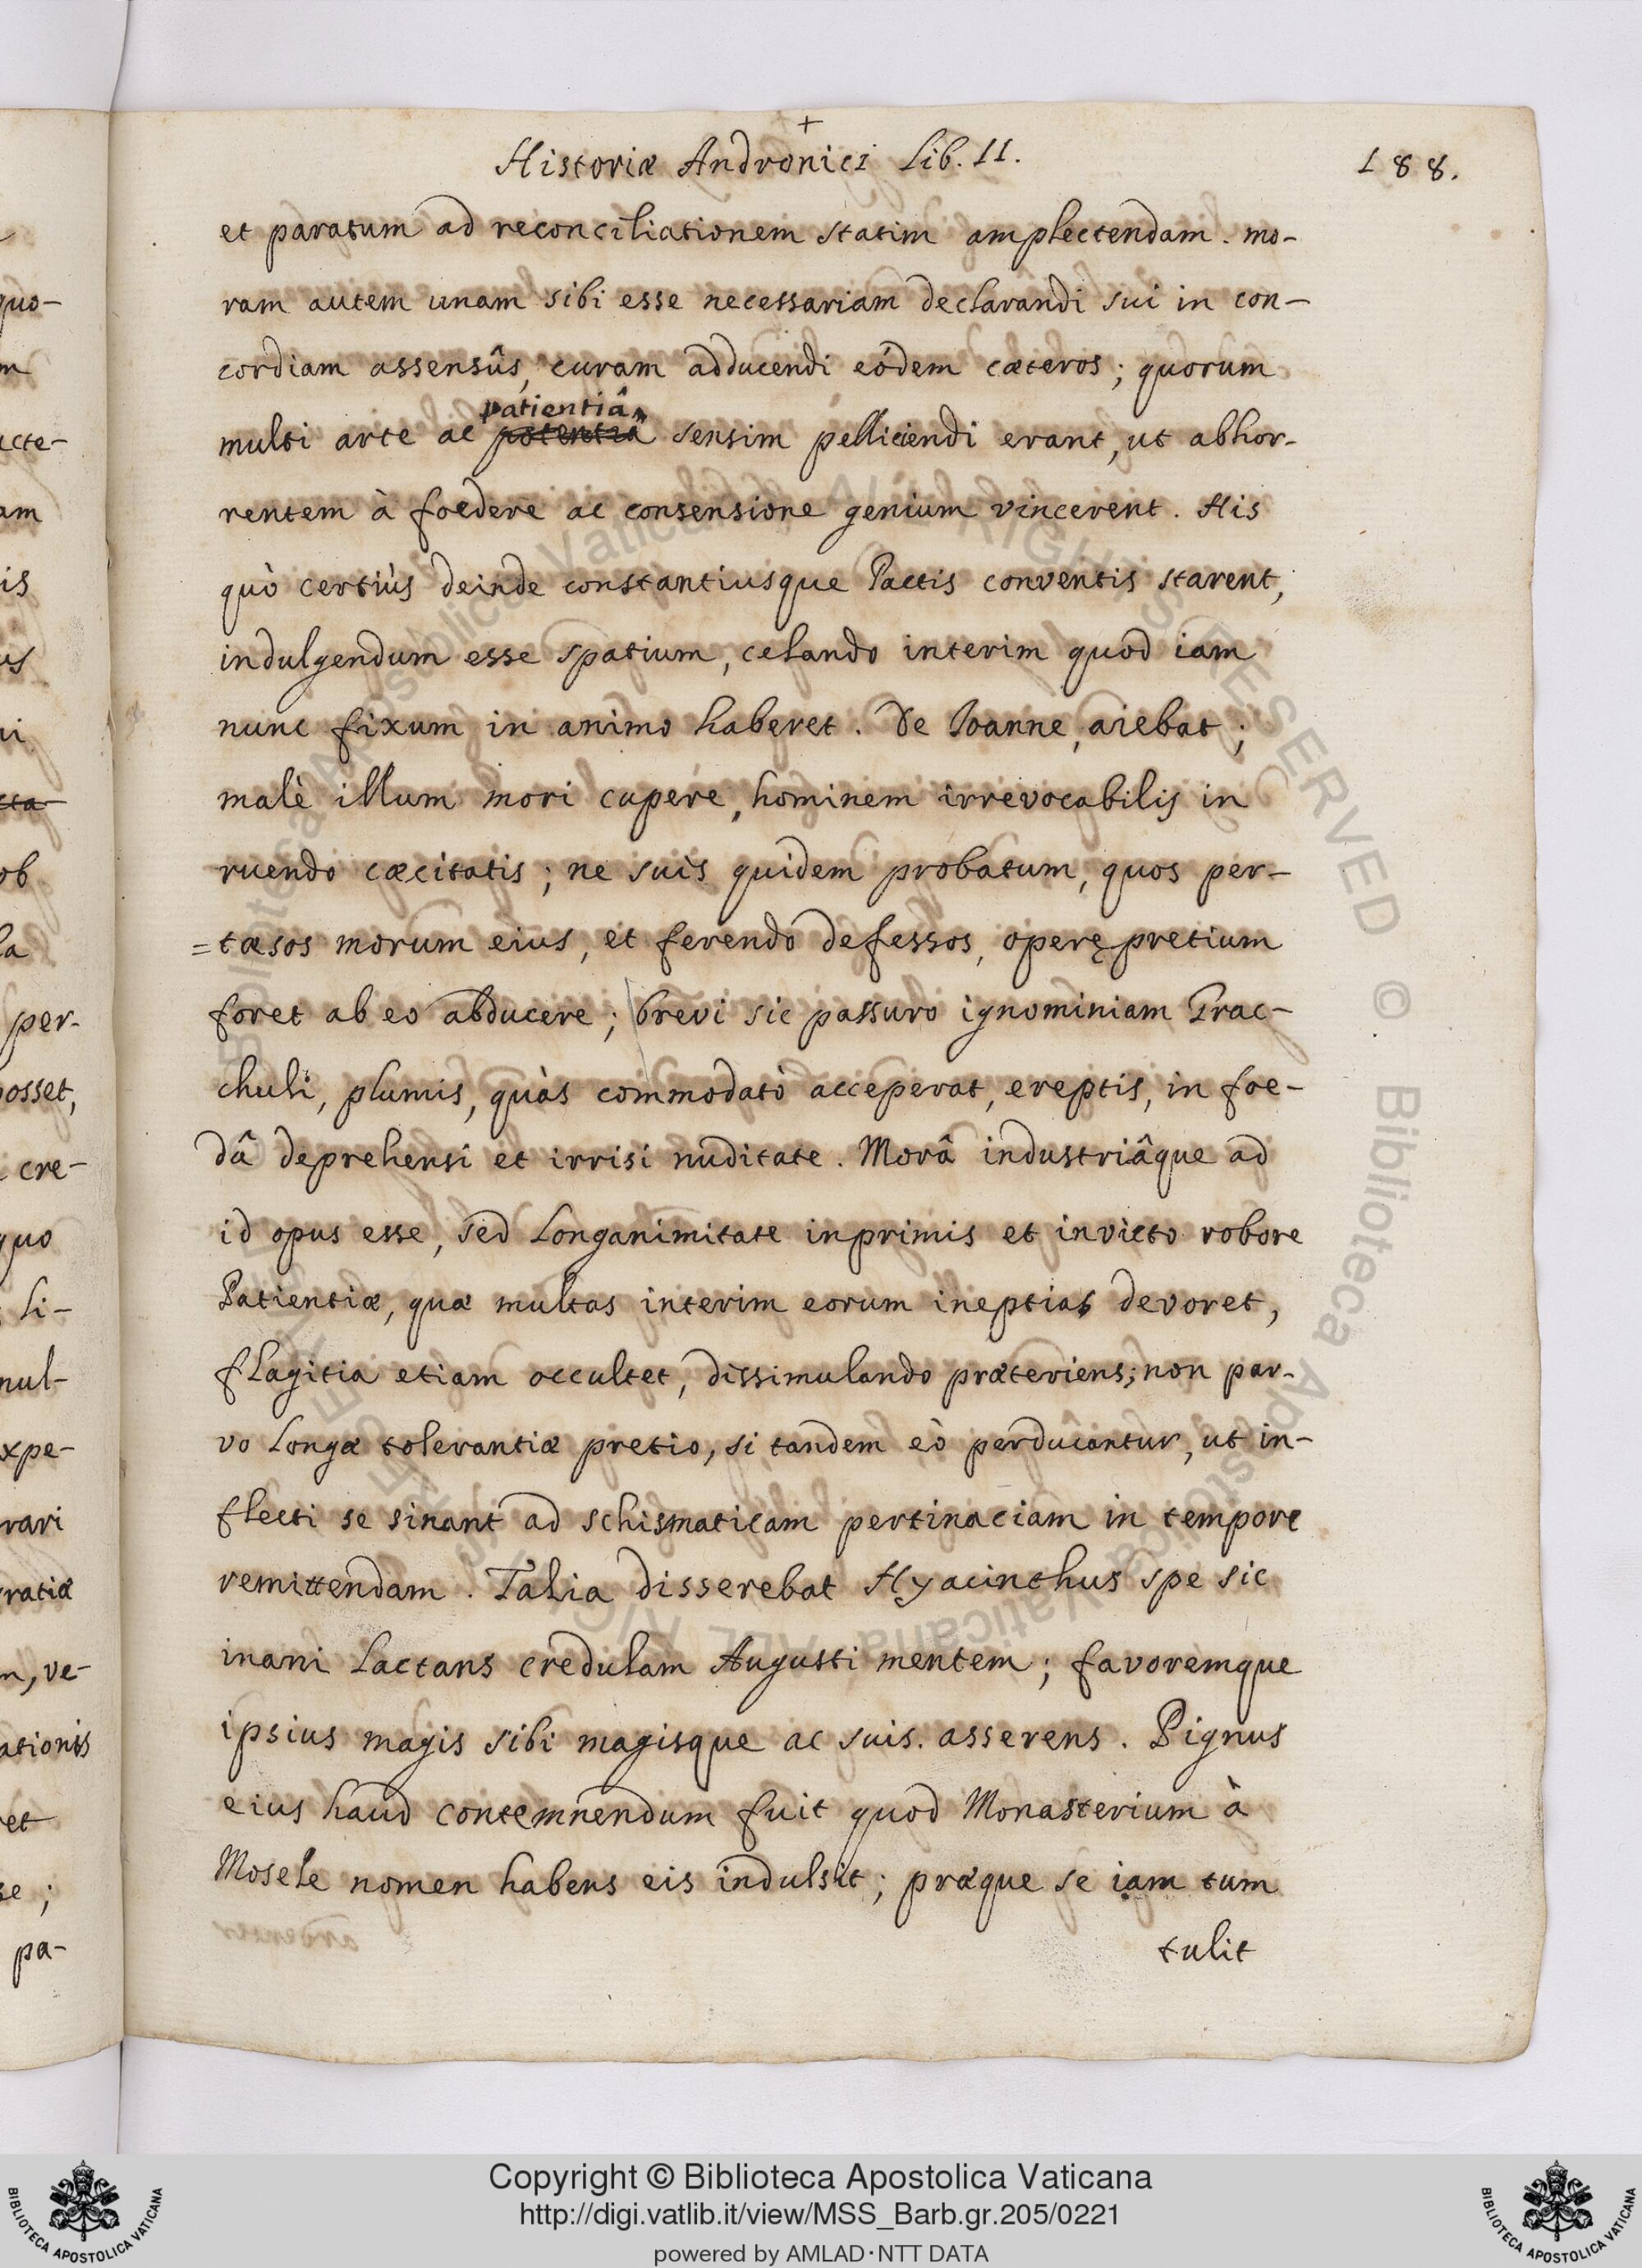 +
Historiæ Andronici Lib. II.
188.
et paratum ad reconciliationem statim amplectendam. mo-
ram autem unam sibi esse necessariam declarandi sui in con-
cordiam assensûs, curam adducendi eódem cæteros; quorum
patientiâ
multi arte ac potentiâ sensim pelliciendi erant, ut abhor-
rentem à foedere ac consensione genium vincerent. His
quò certiùs deinde constantiusque Pactis conventis starent,
indulgendum esse spatium, celando interim quod iam
nunc fixum in animo haberet. De Ioanne, aiebat;
malè illum mori cupere, hominem irrevocabilis in
ruendo cæcitatis; ne suis quidem probatum, quos per-
=tæsos morum eius, et ferendo defessos, operę pretium
foret ab eo abducere; brevi sic passuro ignominiam Grac-
chuli, plumis, quàs commodatò acceperat, ereptis, in foe-
dâ deprehensi et irrisi nuditate. Morâ industriâque ad
id opus esse, sed Longanimitate inprimis et invicto robore
Patientiæ, quæ multas interim eorum ineptias devoret,
flagitia etiam occultet, dissimulando præteriens; non par-
vo Longæ tolerantiæ pretio, si tandem eò perducantur, ut in-
flecti se sinant ad schismaticam pertinaciam in tempore
remittendam. Talia disserebat Hyacinthus spe sic
inani Lactans credulam Augusti mentem; favoremque
ipsius magis sibi magisque ac suis. asserens. Pignus
eius haud contemnendum fuit quod Monasterium à
Mosele nomen habens eis indulsit; præque se iam tum
tulit
quo-
m
acte-
am
is
us
ui
cta
ob
la
per-
posset,
cre-
quo
Li-
nul-
xpe-
rari
ratiæ
m, ve-
ationis
et
se;
pa-
Biblioteca Apostolica Vaticana ALL RIGHTS RESERVED © Biblioteca Apostolica Vaticana ALL RIGHTS RESERVED
Copyright © Biblioteca Apostolica Vaticana
http://digi.vatlib.it/view/MSS_Barb.gr.205/0221
powered by AMLAD·NTT DATA
BIBLIOTECA APOSTOLICA VATICANA
BIBLIOTECA APOSTOLICA VATICANA